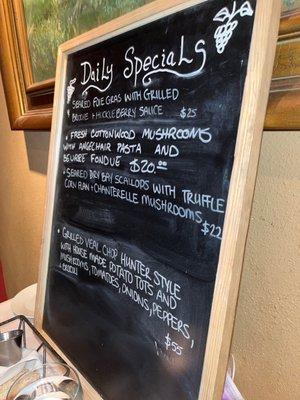 Daily Specials
Seared Foie Gras with Grilled
Brioche + Huckleberry Sauce $25
• Fresh Cottonwood Mushrooms
with Angelhair Pasta and
Beware Fondue $20.00
• Seared Dry Bay Scallops with Truffle
Corn Flan + Chanterelle Mushrooms $22
• Grilled Veal Chop Hunter Style
with House Made Potato Tots and
Mushrooms, Tomatoes, Onions, Peppers,
$55